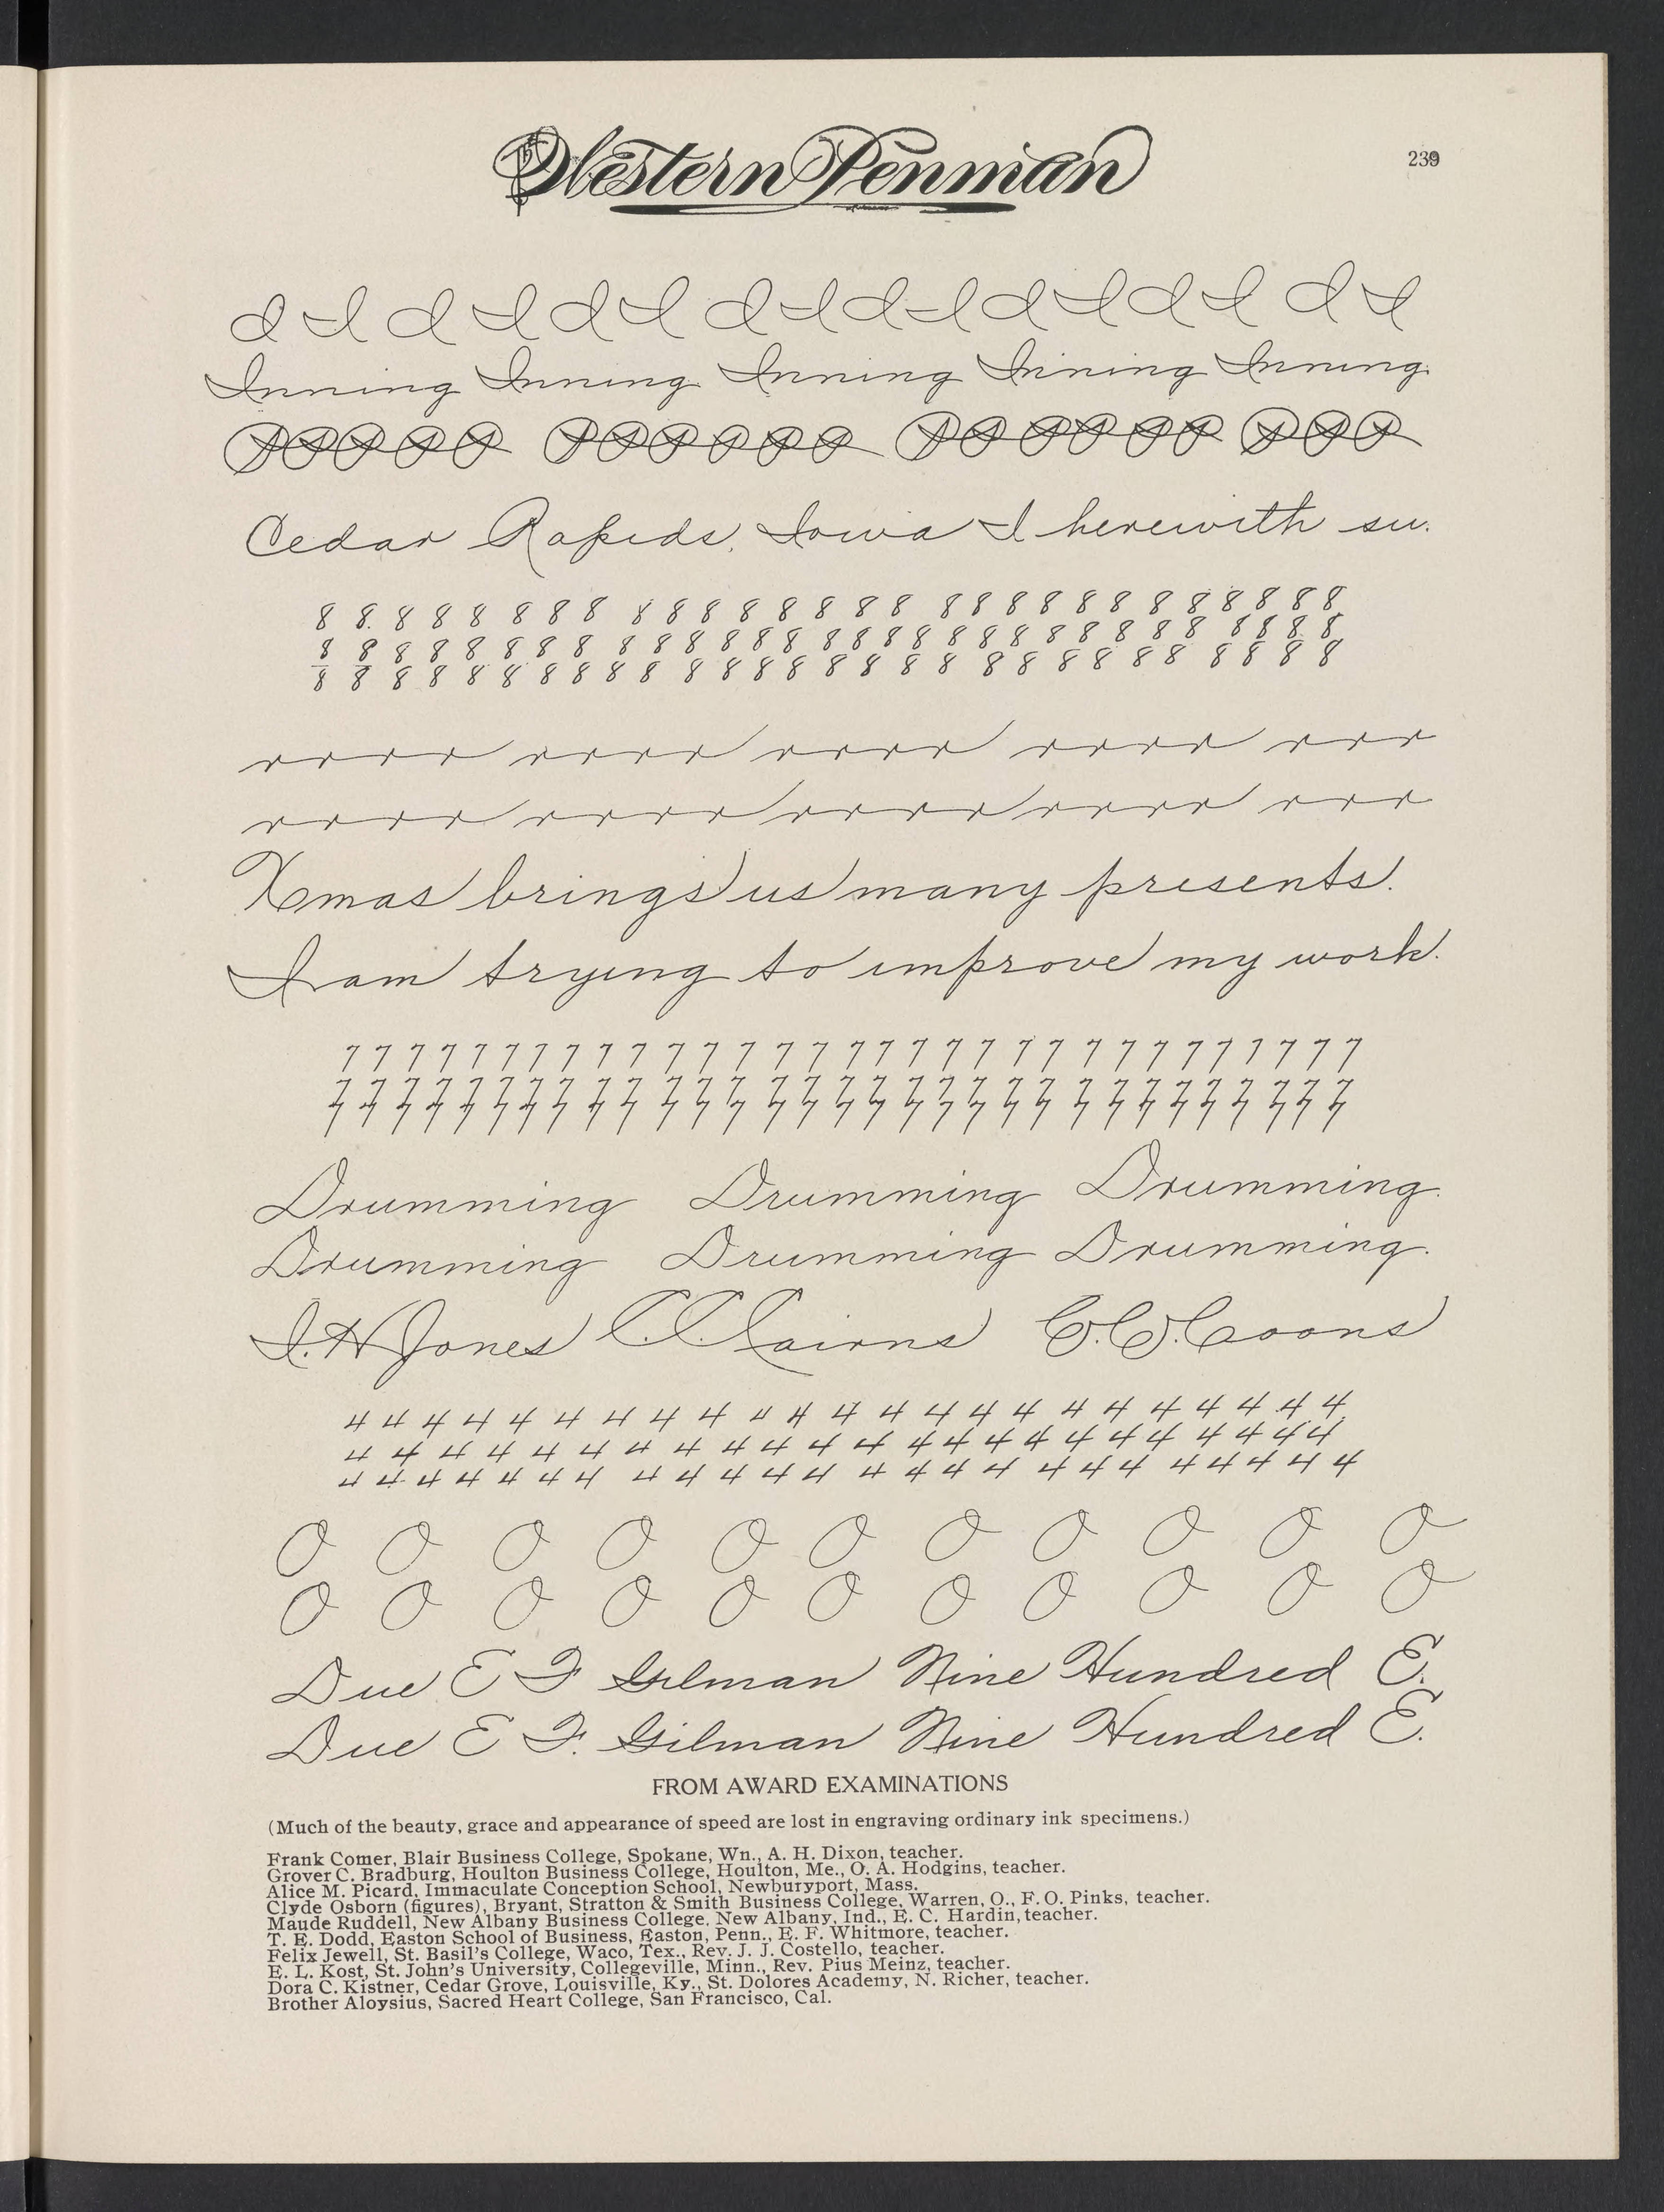 Western Penman
239
Inning Inning Inning Inining Inning
Cedar Rapids, Iowa I herewith su.
8 8 8 8 8 8 8 8 8 8 8 8 8 8 8 8 8 8 8 8 8 8 8 8 8 8 8 8
8 8 8 8 8 8 8 8 8 8 8 8 8 8 8 8 8 8 8 8 8 8 8 8 8 8 8 8 8
8 8 8 8 8 8 8 8 8 8 8 8 8 8 8 8 8 8 8 8 8 8 8 8 8 8 8
r r r r r r r r r r r r r r r r r r r
r r r r r r r r r r r r r r r r r r r
Xmas brings us many presents.
I am trying to improve my work.
7 7 7 7 7 7 7 7 7 7 7 7 7 7 7 7 7 7 7 7 7 7 7 7 7 7 7 7 7 7
7 7 7 7 7 7 7 7 7 7 7 7 7 7 7 7 7 7 7 7 7 7 7 7 7 7 7 7 7
7 7 7 7 7 7 7 7 7 7 7 7 7 7 7 7 7 7 7 7 7 7 7 7 7 7 7 7 7
Drumming Drumming Drumming.
Drumming Drumming Drumming.
I. H Jones C. C. Cairns C. C. Coons
4 4 4 4 4 4 4 4 4 4 4 4 4 4 4 4 4 4 4 4 4 4 4
4 4 4 4 4 4 4 4 4 4 4 4 4 4 4 4 4 4 4 4 4 4 4
4 4 4 4 4 4 4 4 4 4 4 4 4 4 4 4 4 4 4 4 4 4 4 4
O O O O O O O O O O O
O O O O O O O O O O O
Due E F Gilman Nine Hundred E.
Due E F. Gilman Nine Hundred E.
FROM AWARD EXAMINATIONS
(Much of the beauty, grace and appearance of speed are lost in engraving ordinary ink specimens.)
Frank Comer, Blair Business College, Spokane, Wn., A. H. Dixon, teacher.
Grover C. Bradburg, Houlton Business College, Houlton, Me., O. A. Hodgins, teacher.
Alice M. Picard, Immaculate Conception School, Newburyport, Mass.
Clyde Osborn (figures), Bryant, Stratton & Smith Business College, Warren, O., F. O. Pinks, teacher.
Maude Ruddell, New Albany Business College, New Albany, Ind., E. C. Hardin, teacher.
T. E. Dodd, Easton School of Business, Easton, Penn., E. F. Whitmore, teacher.
Felix Jewell, St. Basil's College, Waco, Tex., Rev. J. J. Costello, teacher.
E. L. Kost, St. John's University, Collegeville, Minn., Rev. Pius Meinz, teacher.
Dora C. Kistner, Cedar Grove, Louisville, Ky., St. Dolores Academy, N. Richer, teacher.
Brother Aloysius, Sacred Heart College, San Francisco, Cal.